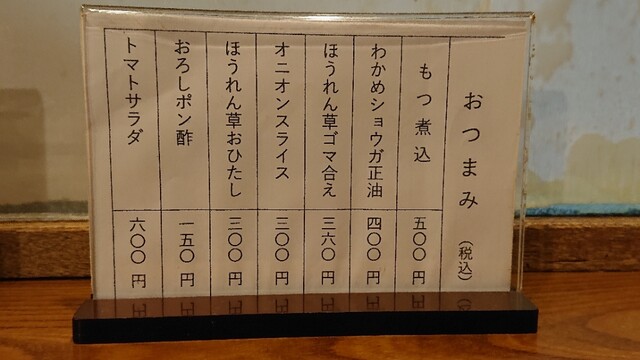 おつまみ (税込)
もつ煮込 五〇〇円
わかめショウガ正油 四〇〇円
ほうれん草ゴマ合え 三六〇円
オニオンスライス 三〇〇円
ほうれん草おひたし 三〇〇円
おろしポン酢 一五〇円
トマトサラダ 六〇〇円